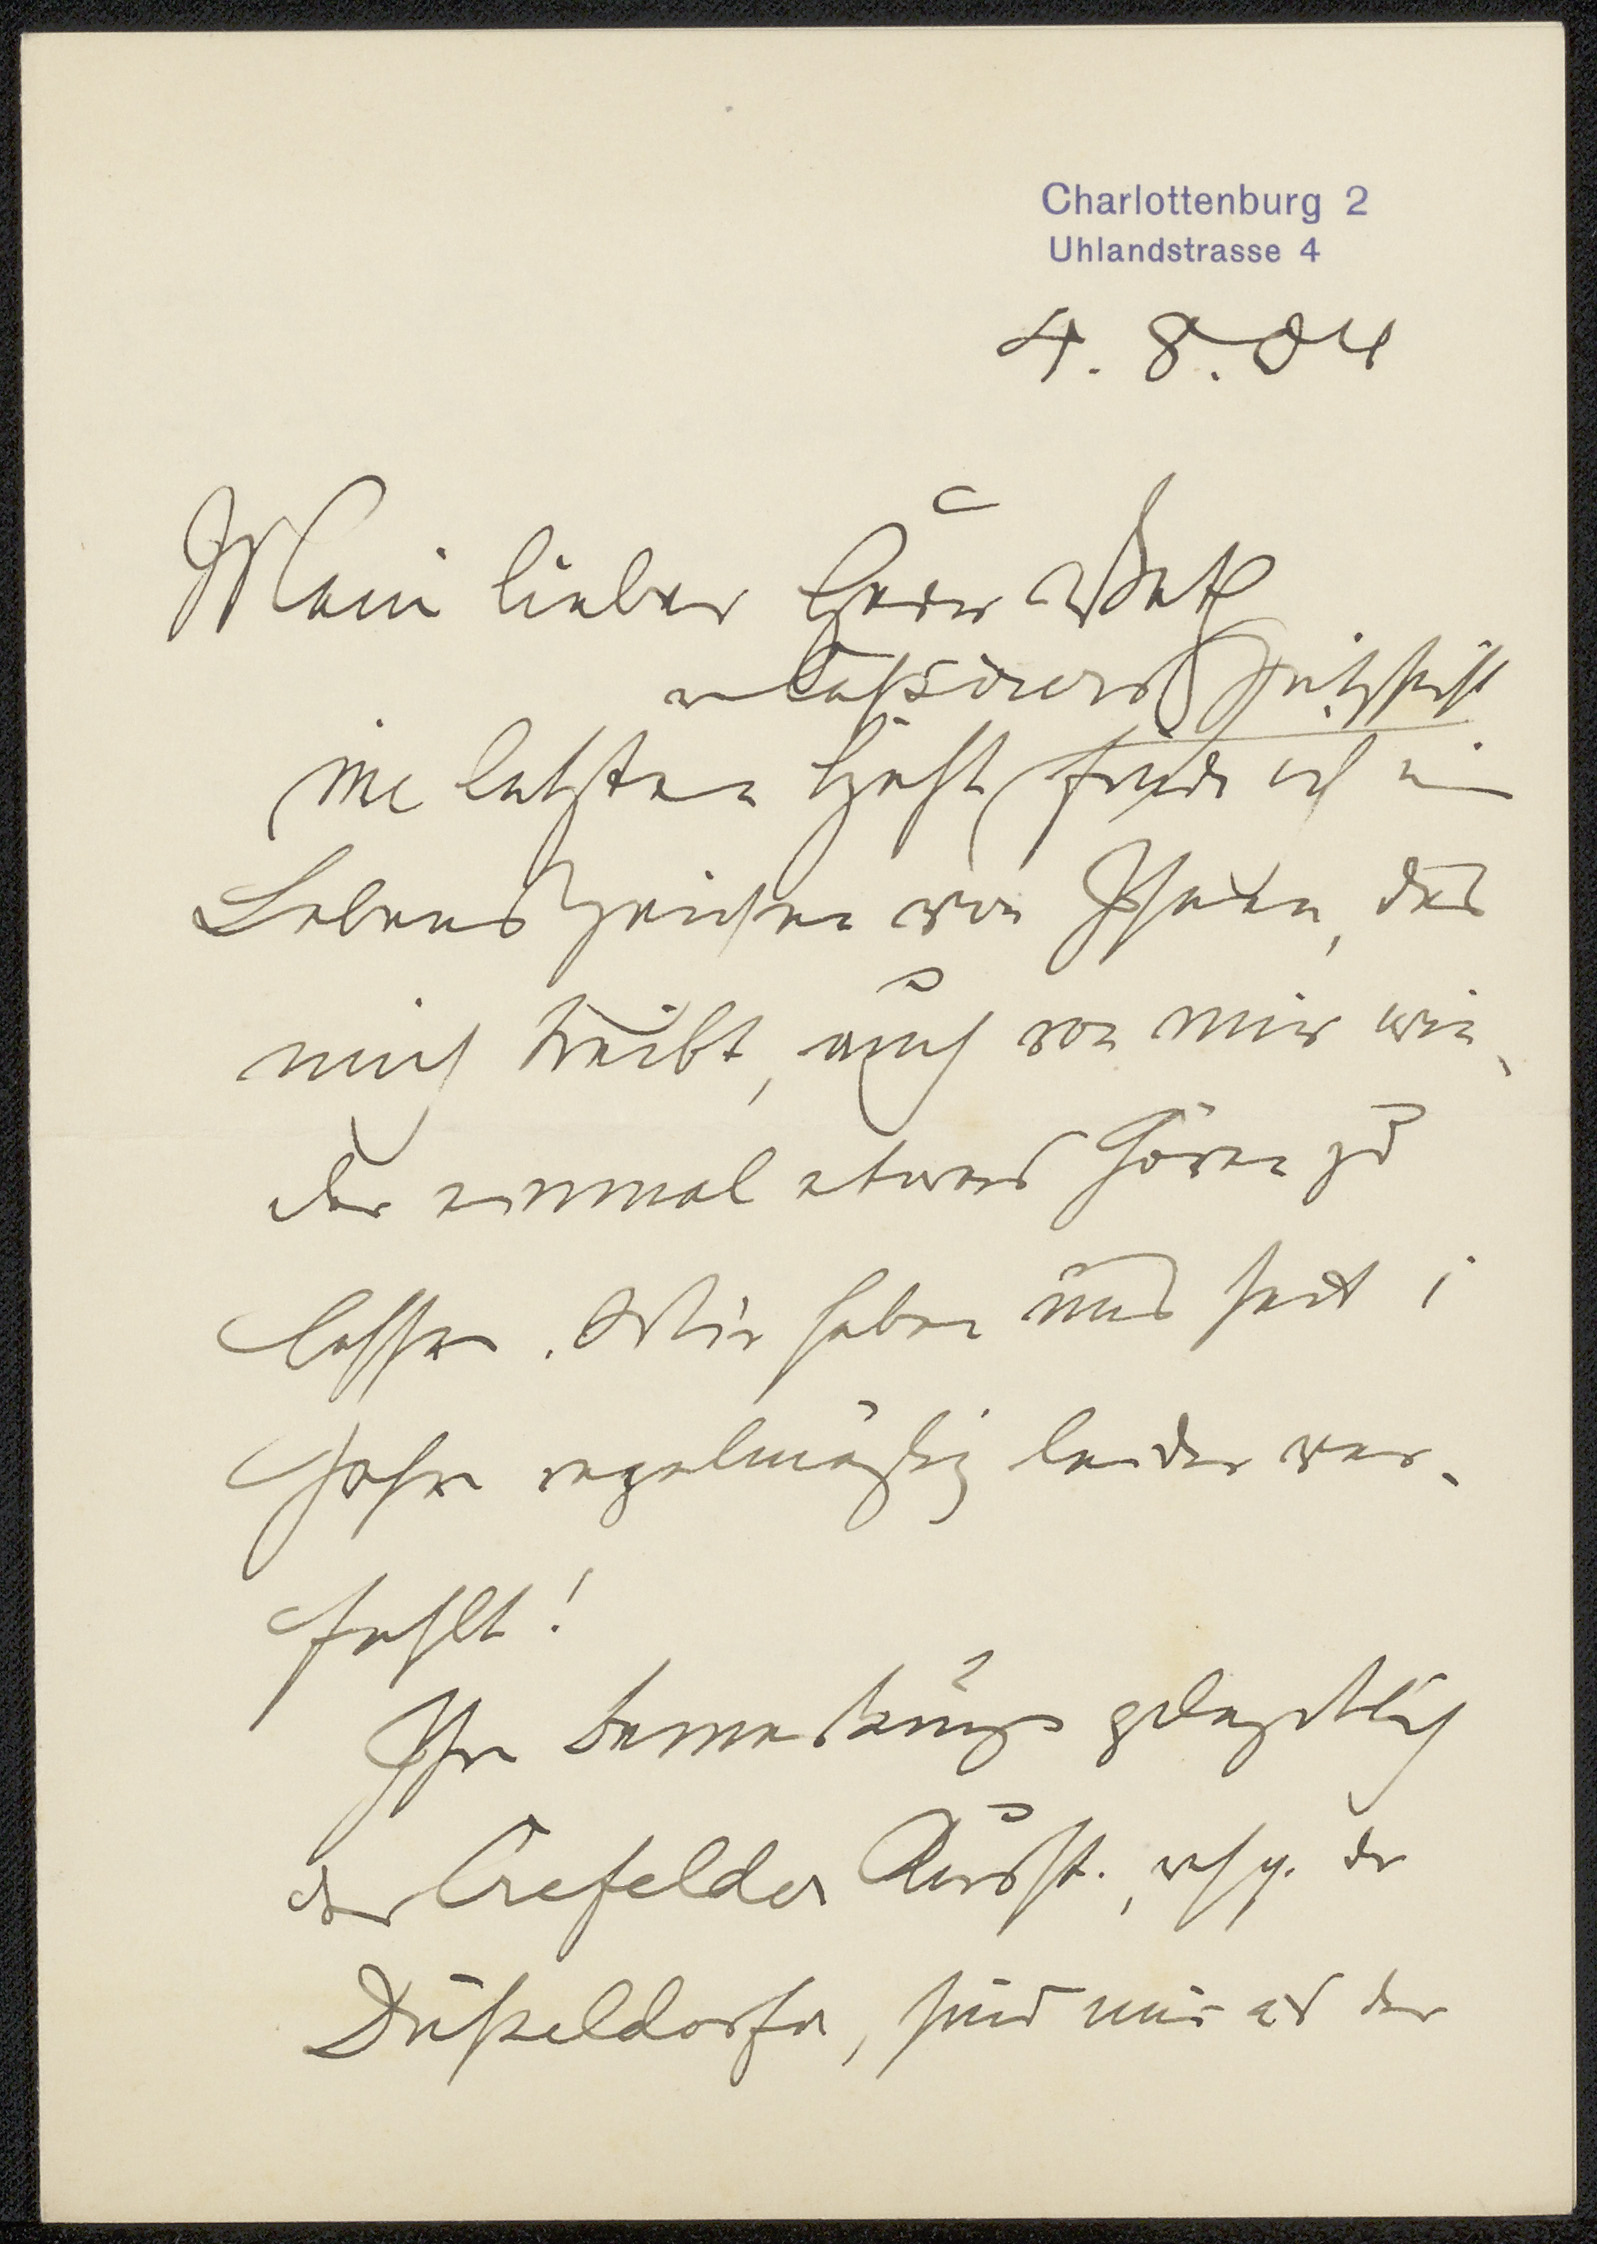 Charlottenburg 2
Uhlandstrasse 4
4. 8. 04
Mein lieber Herr Veth
Zeitschrift
im letzten Heft finde ich ein
Lebenszeichen von Ihnen, das
mich treibt, auch von mir wie-
der einmal etwas hören zu
lassen. Wir haben uns seit 1
Jahr regelmäßig leider ver-
fehlt!
Ihre Bemerkungen gelegentlich
der Crefelder Ausst., resp. der
Düsseldorfer, sind mir aus der